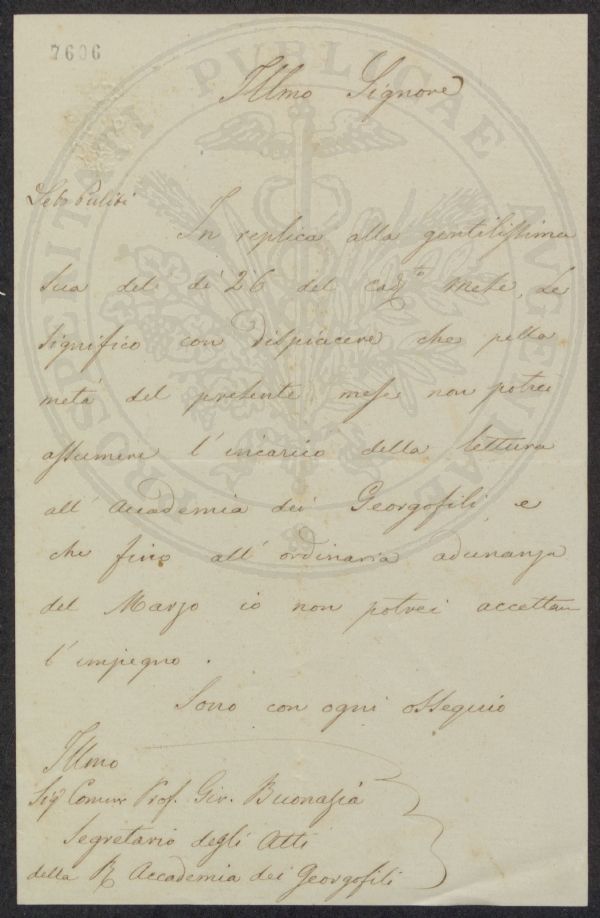 7606
Illmo Signore
In replica alla gentilissima
sua del dì 26 del cad.to Mese, Le
significo con dispiacere che pella
metà del presente mese non potrei
assumere l'incarico della lettura
all'Accademia dei Georgofili e
che fino all'ordinaria adunanza
del Marzo io non potrei accettare
l'impegno.
Sono con ogni ossequio
Illmo
Sigr Comm Prof. Gir. Buonazia
Segretario degli Atti
della R Accademia dei Georgofili
PROSPERITATI PUBLICAE AUGENDAE